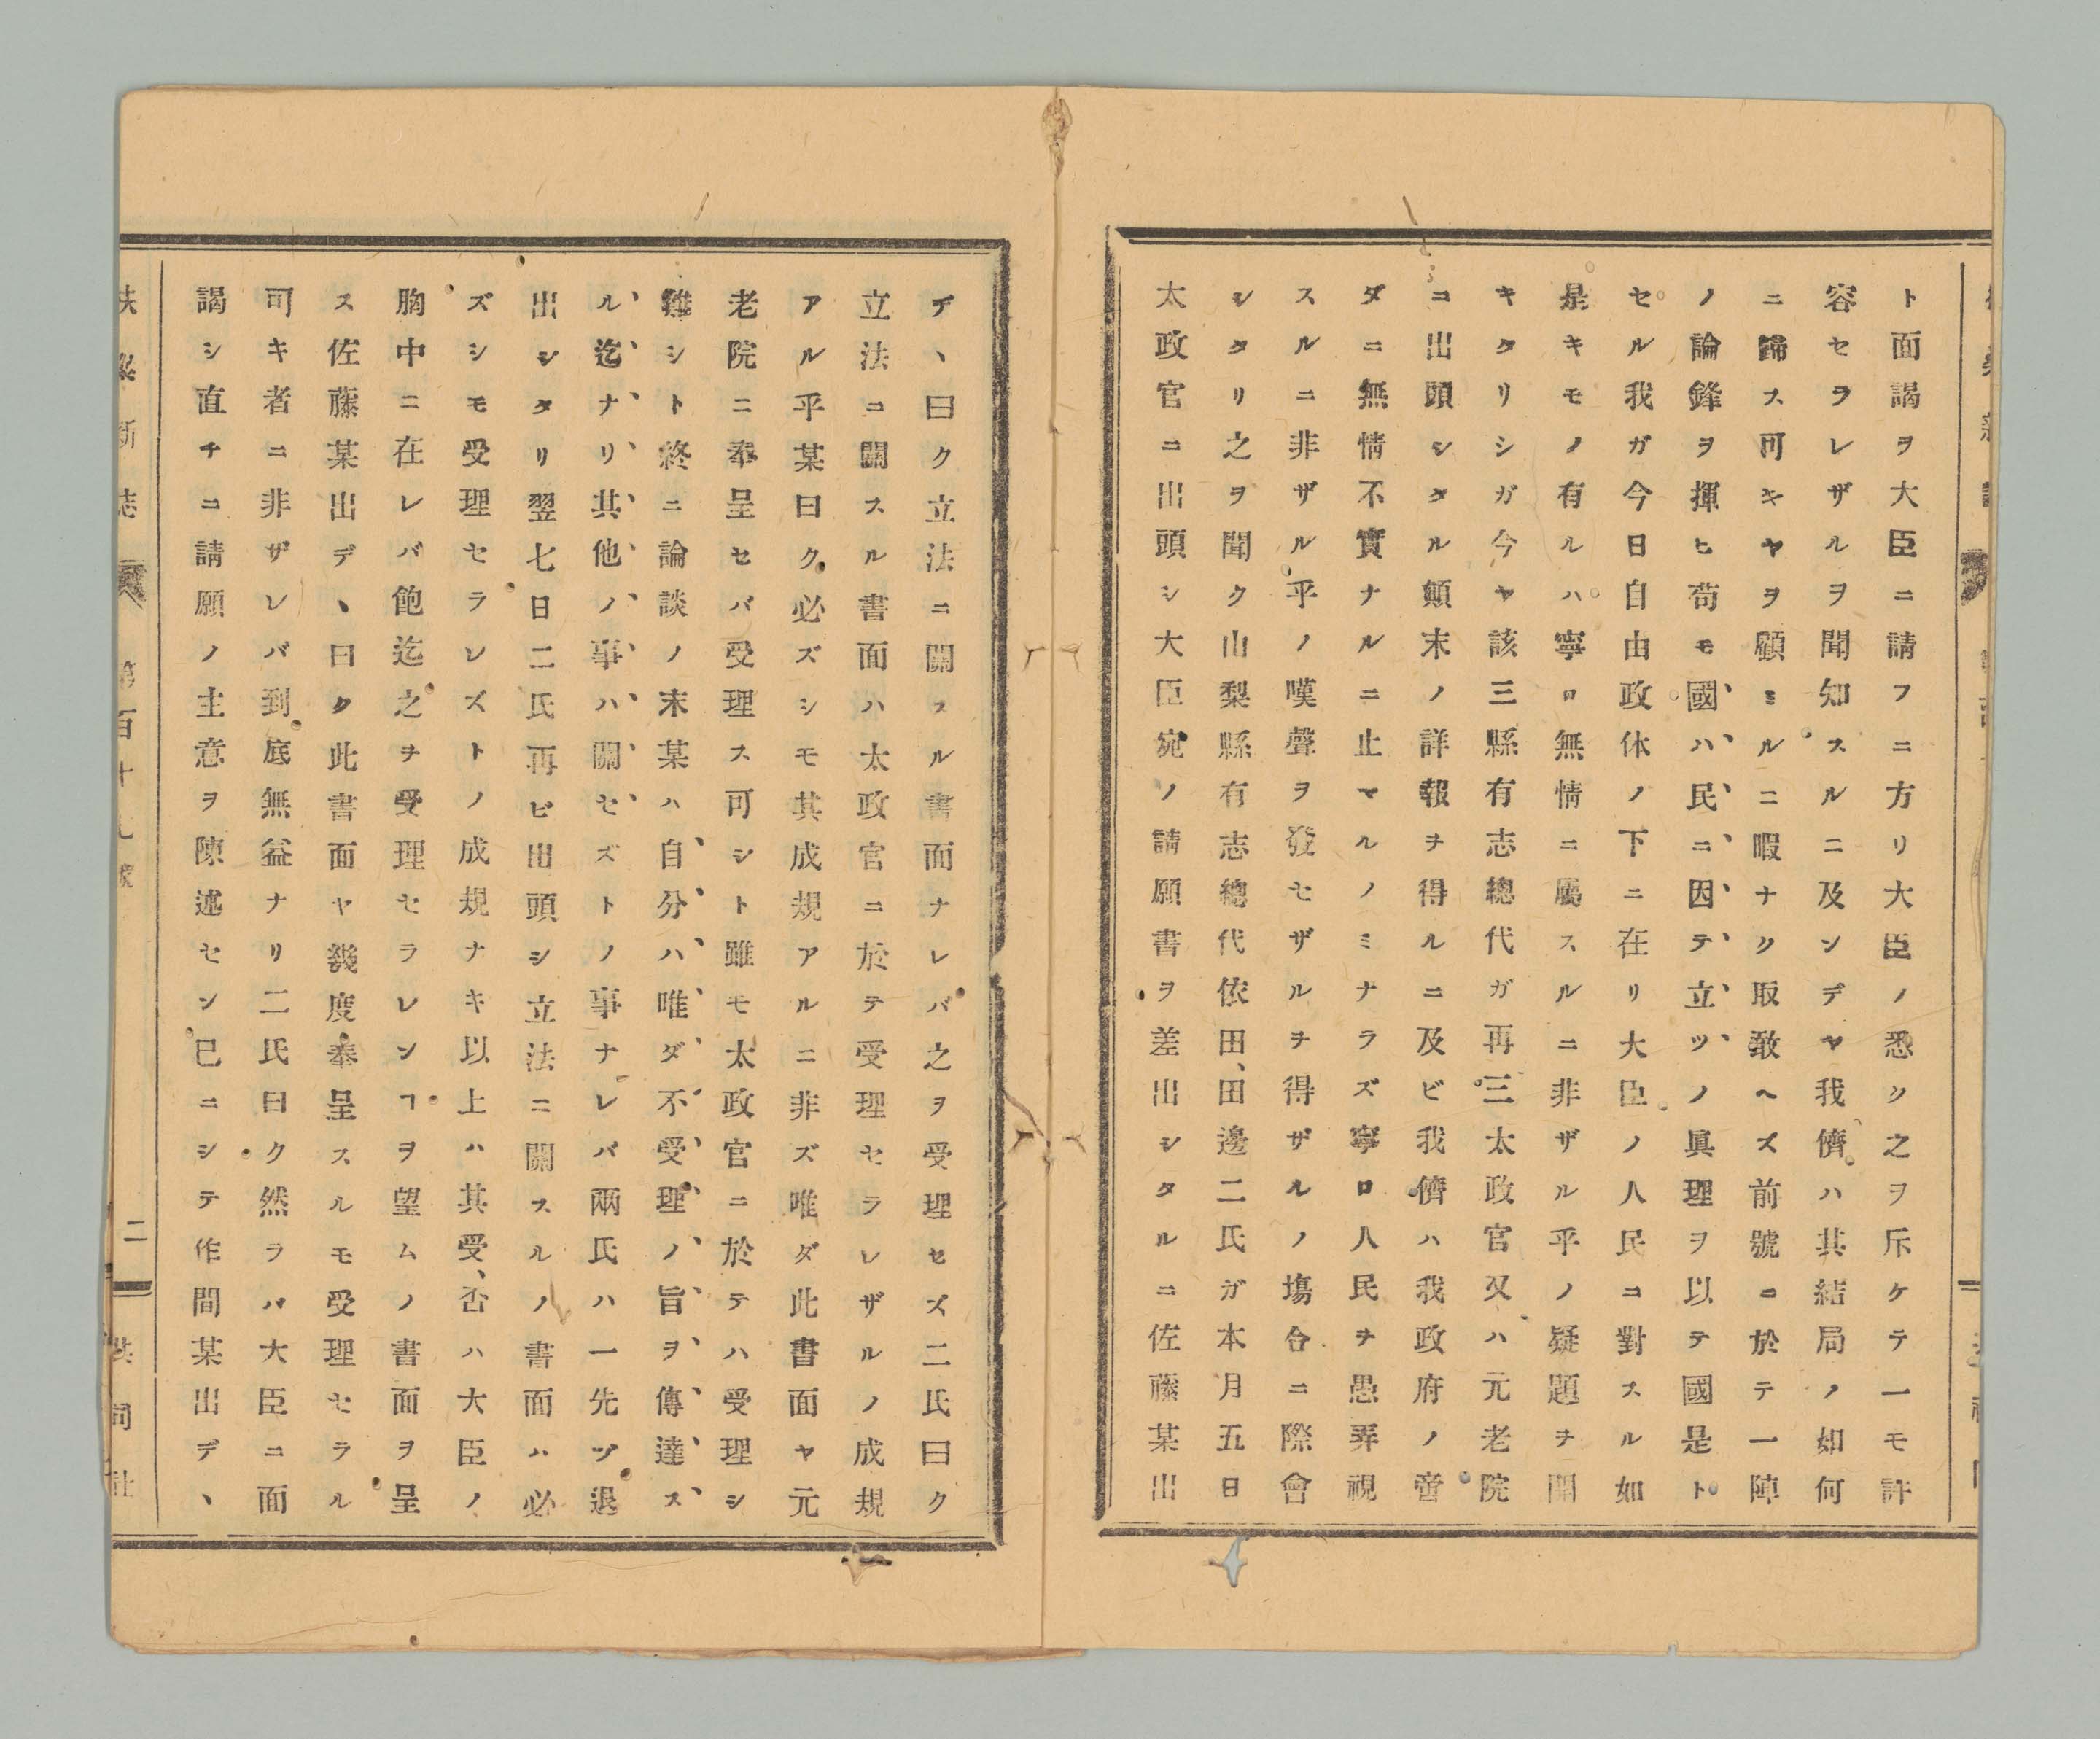 ト面謁ヲ大臣ニ請フニ方リ大臣ノ悉ク之ヲ斥ケテ一モ許
容セラレザルヲ聞知スルニ及ンデヤ我儕ハ其結局ノ如何
ニ歸ス可キヤヲ顧ミルニ暇ナク取敢ヘズ前號ニ於テ一陣
ノ論鋒ヲ揮ヒ苟モ國ハ民ニ因テ立ツノ眞理ヲ以テ國是ト
セル我ガ今日自由政体ノ下ニ在リ大臣ノ人民ニ對スル如
是キモノ有ルハ寧ロ無情ニ屬スルニ非ザル乎ノ疑題ヲ開
キタリシガ今ヤ該三縣有志總代ガ再三太政官又ハ元老院
ニ出頭シタル顛末ノ詳報ヲ得ルニ及ビ我儕ハ我政府ノ啻
ダニ無情不實ナルニ止マルノミナラズ寧ロ人民ヲ愚弄視
スルニ非ザル乎ノ嘆聲ヲ發セザルヲ得ザルノ塲合ニ際會
シタリ之ヲ聞ク山梨縣有志總代依田、田邊二氏ガ本月五日
太政官ニ出頭シ大臣宛ノ請願書ヲ差出シタルニ佐藤某出
デヽ曰ク立法ニ關スル書面ナレバ之ヲ受理セズ二氏曰ク
立法ニ關スル書面ハ太政官ニ於テ受理セラレザルノ成規
アル乎某曰ク必ズシモ其成規アルニ非ズ唯ダ此書面ヤ元
老院ニ奉呈セバ受理ス可シト雖モ太政官ニ於テハ受理シ
難シト終ニ論談ノ末某ハ自分ハ唯ダ不受理ノ旨ヲ傳達ス
ル迄ナリ其他ノ事ハ關セズトノ事ナレバ兩氏ハ一先ヅ退
出シタリ翌七日二氏再ビ出頭シ立法ニ關スルノ書面ハ必
ズシモ受理セラレズトノ成規ナキ以上ハ其受、否ハ大臣ノ
胸中ニ在レバ飽迄之ヲ受理セラレンヿヲ望ムノ書面ヲ呈
ス佐藤某出デヽ曰ク此書面ヤ幾度奉呈スルモ受理セラル
可キ者ニ非ザレバ到底無益ナリ二氏曰ク然ラバ大臣ニ面
謁シ直チニ請願ノ主意ヲ陳述セン已ニシテ作間某出デヽ
新誌 第百十九號 二